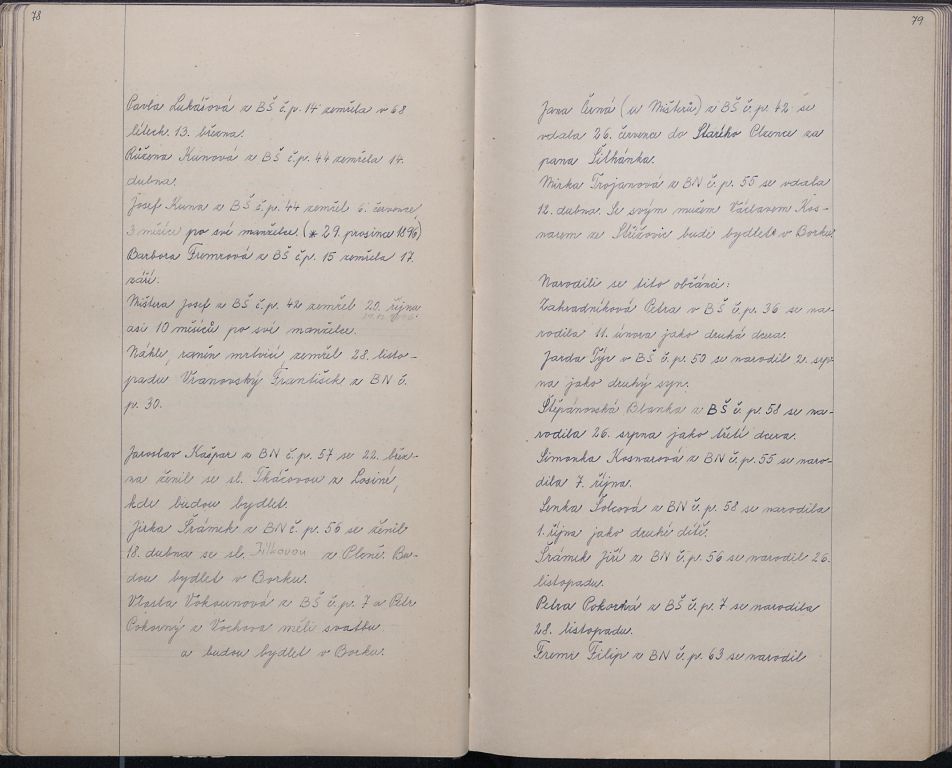 78
Pavla Lukášová z BŠ č.p. 14 zemřela v 68
létech 13. března.
Růžena Kunová z BŠ č.p. 44 zemřela 14.
dubna.
Josef Kuna z BŠ č.p. 44 zemřel 6. července
3 měsíce po své manželce. (* 29. prosince 1896)
Barbora Fremrová z BŠ č.p. 15 zemřela 17.
září.
Mištera Josef z BŠ č.p. 42 zemřel 20. října
asi 10 měsíců po své manželce.
Náhle, raněn mrtvicí zemřel 28. listo-
padu Vranovský František z BN č.
p. 30.
Jaroslav Kašpar z BN č.p. 57 se 22. břez-
na ženil se sl. Tkáčovou z Losiné,
kde budou bydlet.
Jirka Šrámek z BN č.p. 56 se ženil
18. dubna se sl. Jílkovou z Plzně. Bu-
dou bydlet v Borku.
Vlasta Vokounová z BŠ č.p. 7 a Petr
Pokorný z Vochova měli svatbu
a budou bydlet v Borku.
79
Jana Černá (u Mišterů) z BŠ č.p. 42 se
vdala 26. července do Starého Plzence za
pana Šilhánka.
Mirka Trojanová z BN č.p. 55 se vdala
12. dubna. Se svým mužem Václavem Kos-
narem ze Střížovic bude bydlet v Borku.
Narodili se tito občánci:
Zahradníková Petra v BŠ č.p. 36 se na-
rodila 11. února jako druhá dcera.
Jarda Týr v BŠ č.p. 50 se narodil 2. srp-
na jako druhý syn.
Štěpánovská Blanka z BŠ č.p. 58 se na-
rodila 26. srpna jako třetí dcera.
Simonka Kosnarová z BN č.p. 55 se naro-
dila 7. října.
Lenka Šolcová z BN č.p. 58 se narodila
1. října jako druhé dítě.
Šrámek Jiří z BN č.p. 56 se narodil 26.
listopadu.
Petra Pokorná z BŠ č.p. 7 se narodila
28. listopadu.
Fremr Filip z BN č.p. 63 se narodil